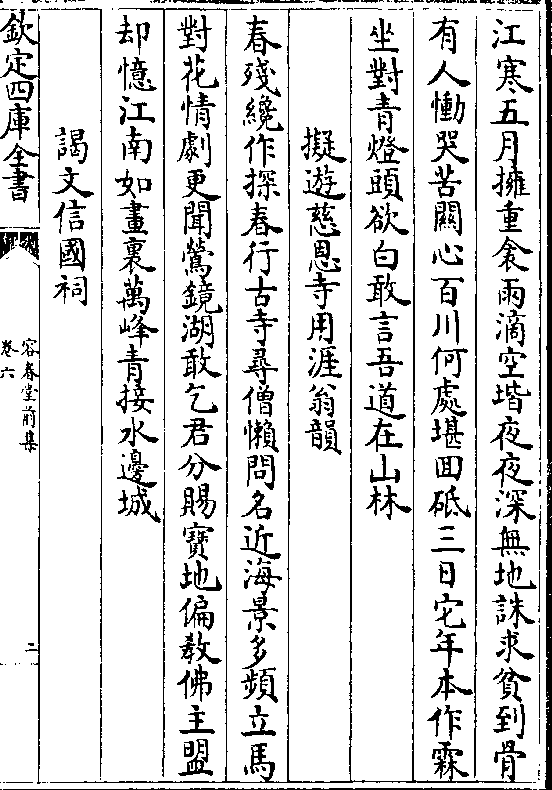 江寒五月擁重衾雨滴空堦夜夜深無地誅求貧到骨
有人慟哭苦闗心百川何處堪回砥三日它年本作霖
坐對青燈頭欲白敢言吾道在山林
擬遊慈恩寺用涯翁韻
春殘纔作探春行古寺尋僧懶問名近海景多頻立馬
對花情劇更聞鶯鏡湖敢乞君分賜寶地偏教佛主盟
却憶江南如畫裏萬峰青接水邊城
謁文信國祠
欽定四庫全書
容春堂前集
卷六
二